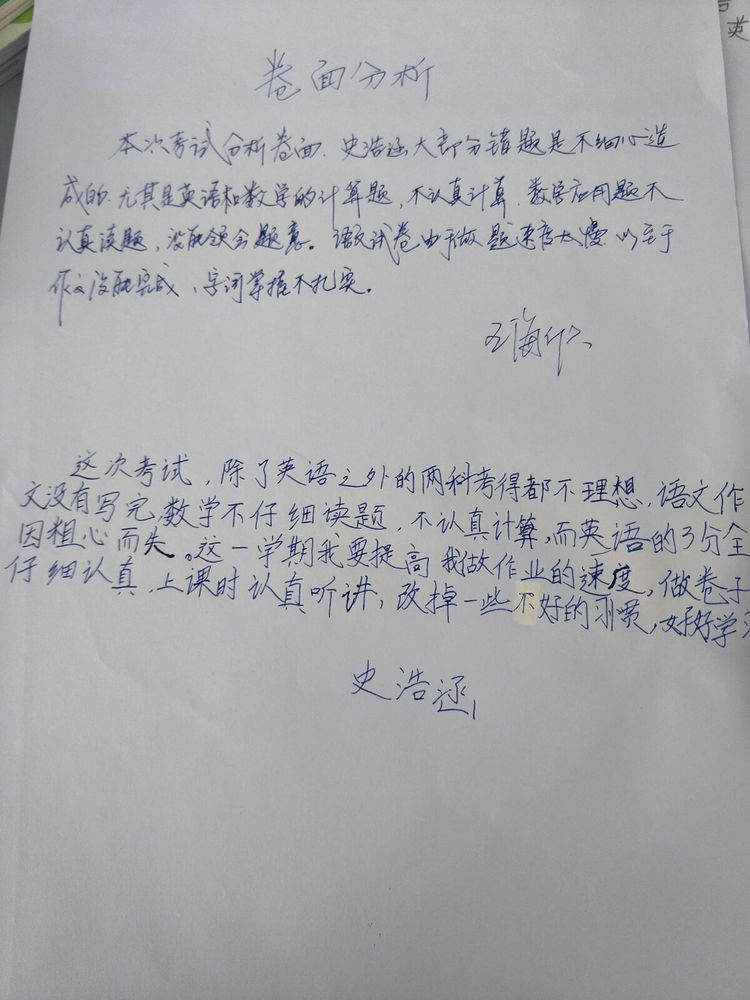 卷面分析
本次考试分析卷面.史浩涵大部分错题是不细心造
成的.尤其是英语和数学的计算题,不认真计算.数学应用题不
认真读题,没能领会题意。语文试卷由于做题速度太慢以至于
作文没能完成、字词掌握不扎实。
这次考试,除了英语之外的两科考得都不理想,语文作
文没有写完,数学不仔细读题,不认真计算,而英语的3分全
因粗心而失。这一学期我要提高我做作业的速度,做卷子
仔细认真,上课时认真听讲,改掉一些不好的习惯,好好学习
史浩涵
英